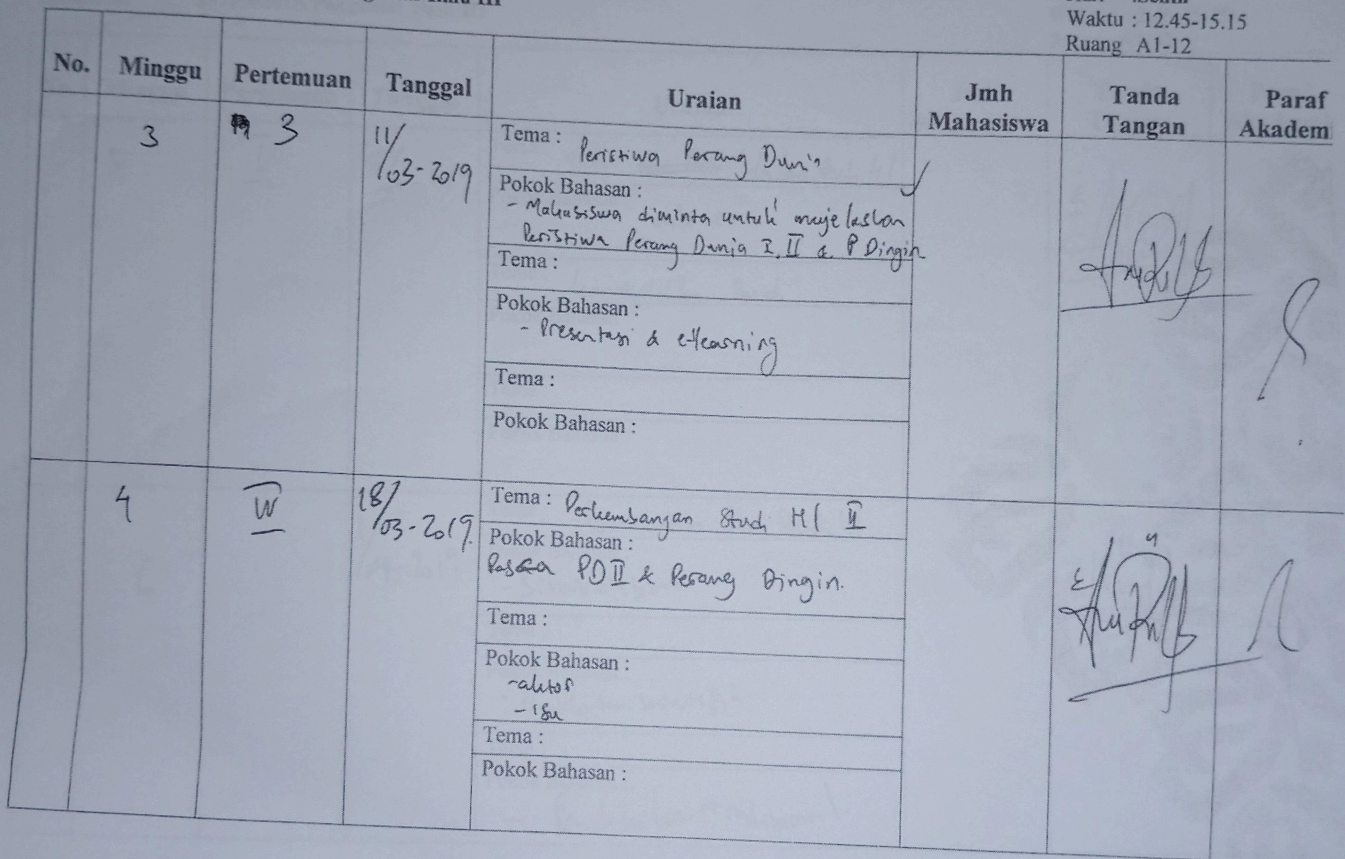 III
Waktu : 12.45-15.15
Ruang A1-12
No. Minggu Pertemuan Tanggal Uraian Jmh Mahasiswa Tanda Tangan Paraf Akadem
3 3 11/03-2019
Tema : Peristiwa Perang Dunia
Pokok Bahasan :
- Mahasiswa diminta untuk mejelaskan
Peristiwa Perang Dunia I, II & P Dingin
Tema :
Pokok Bahasan :
- Presentasi & e-learning
Tema :
Pokok Bahasan :
4 IV 18/03-2019.
Tema : Perkembangan Studi HI II
Pokok Bahasan :
Pasca PD II & Perang Dingin.
Tema :
Pokok Bahasan :
- aktor
- isu
Tema :
Pokok Bahasan :